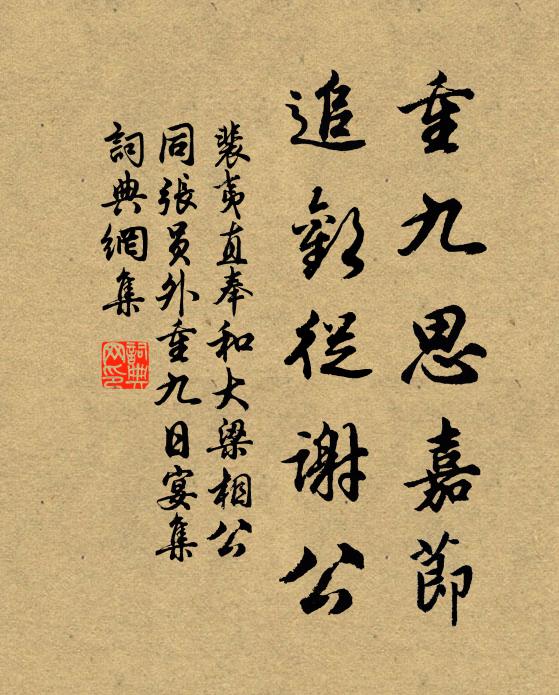 重九思嘉節
追歡從謝公
裴夷直奉和大梁相公
同張員外重九日宴集
詞典網集
詞典
网印